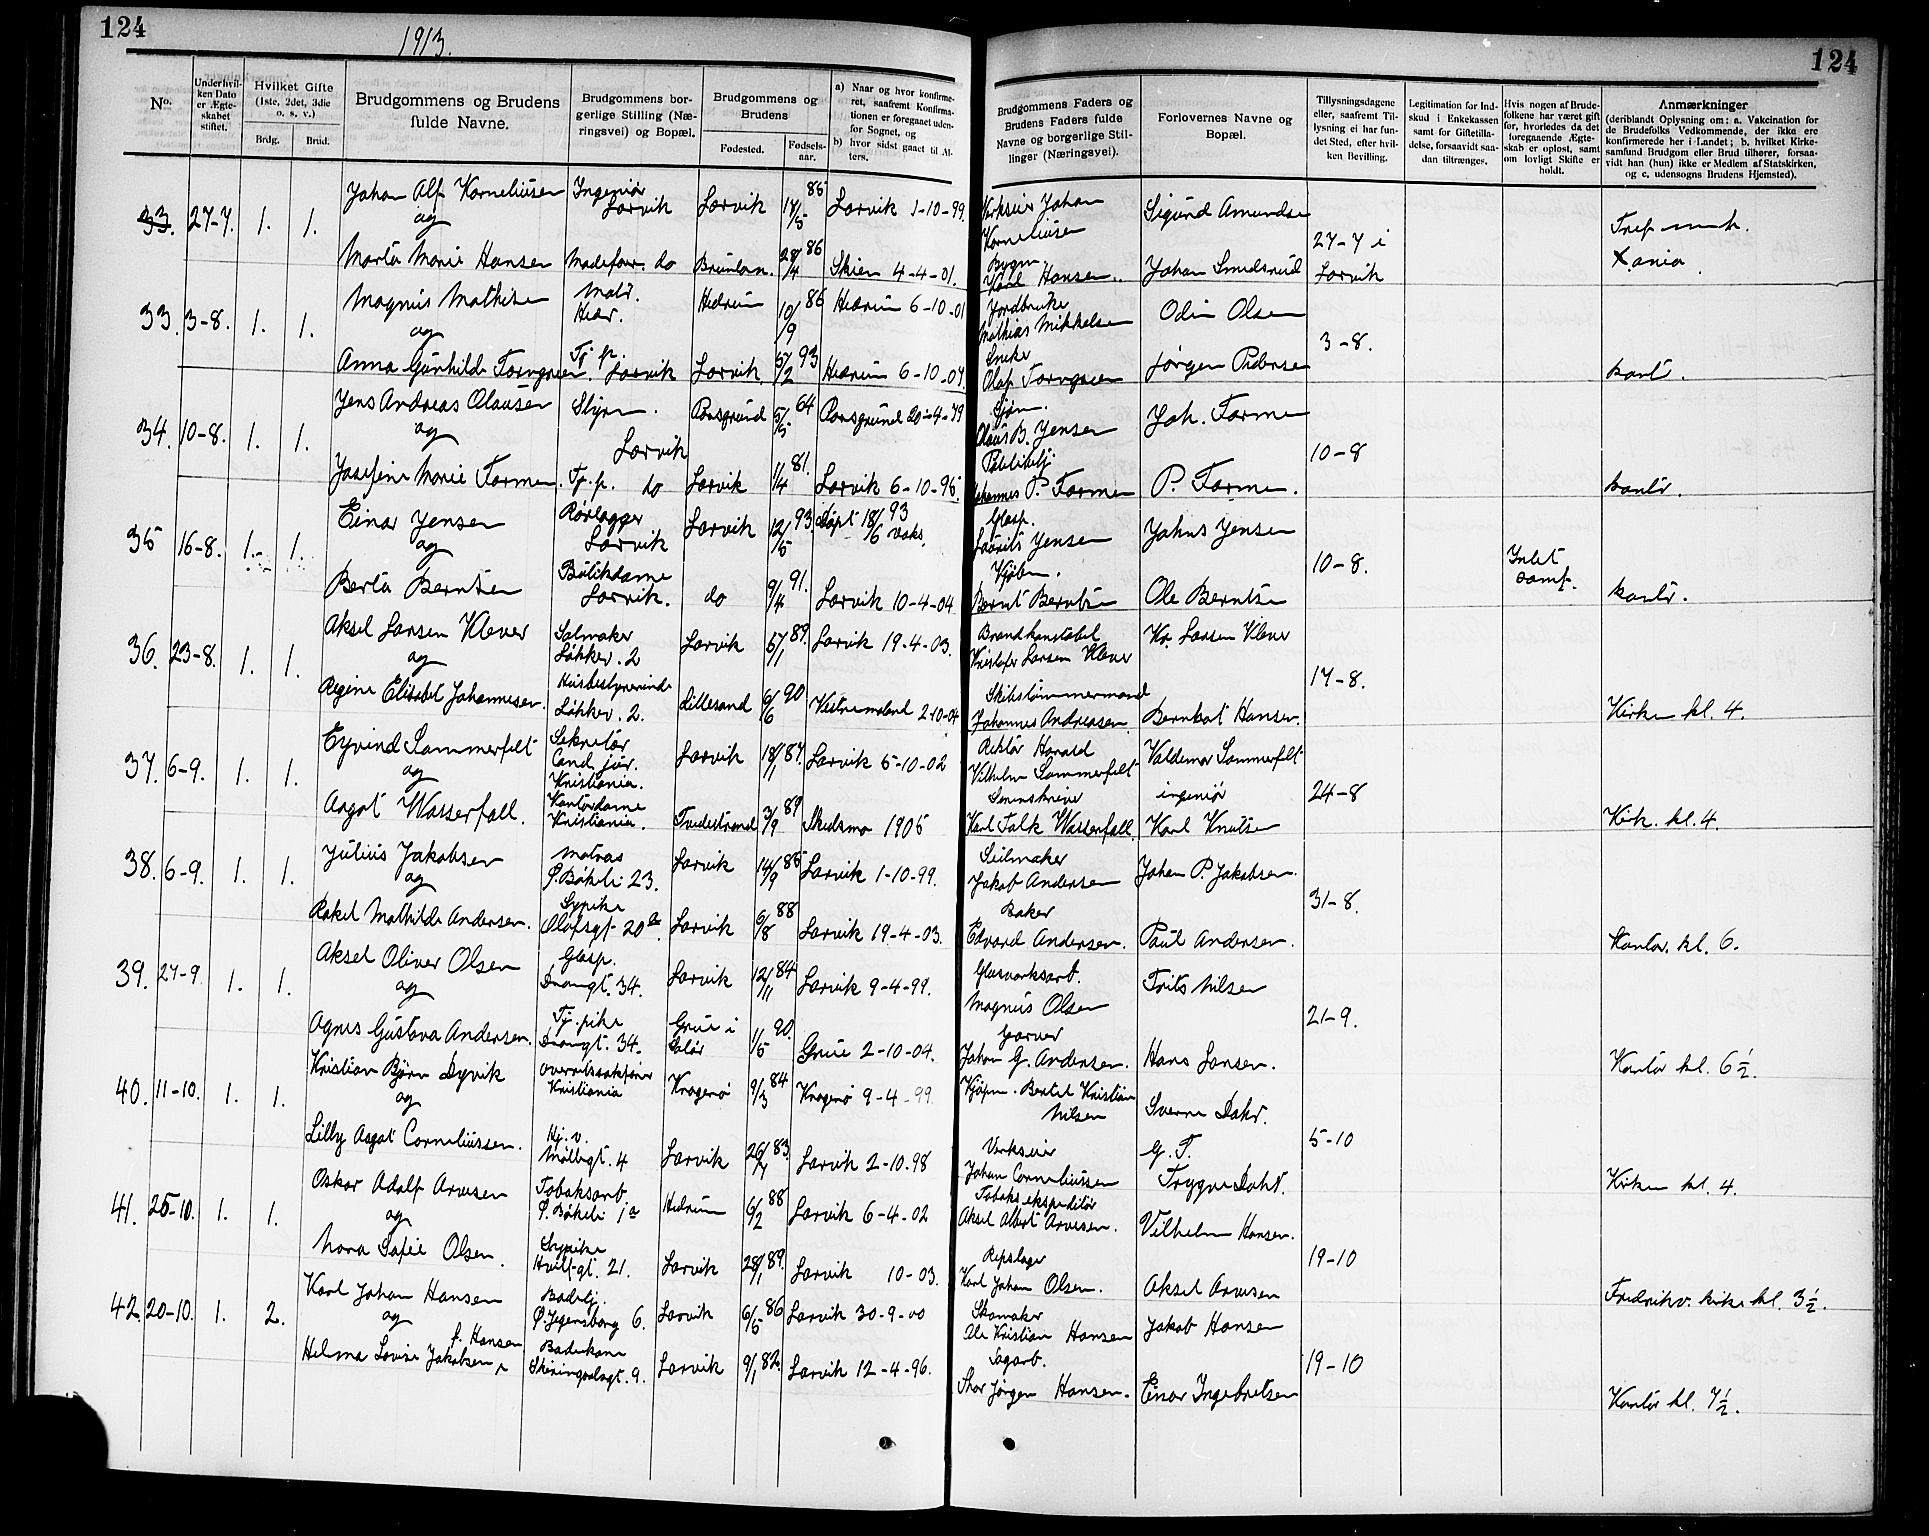 124
1913.
124
No.
Underhvil-
ken Dato
er Ægte-
skabet
stiftet.
Hvilket Gifte
(1ste, 2det, 3die
o. s. v.)
Brdg.
Brud.
Brudgommens og Brudens
fulde Navne.
Brudgommens bor-
gerlige Stilling (Næ-
ringsvei) og Bopæl.
Brudgommens og
Brudens
Fødested.
Fødsels-
aar.
a) Naar og hvor konfirme-
ret, saafremt Konfirma-
tionen er foregaaet uden-
for Sognet, og
b) hvor sidst gaaet til Al-
ters.
Brudgommens Faders og
Brudens Faders fulde
Navne og borgerlige Stil-
linger (Næringsvei).
Forlovernes Navne og
Bopæl.
Tillysningsdagene
eller, saafremt Til-
lysning ei har fun-
det Sted, efter hvil-
ken Bevilling.
Legitimation for Ind-
skud i Enkekassen
samt for Giftetilla-
delse, forsaavidt saa-
dan tiltrænges.
Hvis nogen af Brude-
folkene har været gift
før, hvorledes da det
foregaaende Ægte-
skab er opløst, samt
om lovligt Skifte er
holdt.
Anmærkninger
(deriblandt Oplysning om: a. Vakcination for
de Brudefolks Vedkommende, der ikke ere
konfirmerede her i Landet; b. hvilket Kirke-
samfund Brudgom eller Brud tilhører, forsaa-
vidt han (hun) ikke er Medlem af Statskirken,
og c. udensogns Brudens Hjemsted).
33. 27-7. 1. 1. Johan Alf Korneliusen Ingeniør Larvik Larvik 17/5 85 Larvik 1-10-99. Verkseier Johan Korneliusen Sigurd Amundsen 27-7 i Larvik
og
Marta Marie Hansen do Brunlanes 28/4 86 Skien 4-4-01. Bygm. Karl Hansen Johan Smidsrød Kania
33. 3-8. 1. 1. Magnus Mathisen Matr. Hedr. Hedrum 10/9 86 Hedrum 6-10-01 Jordbruker Mathias Mikkelsen Odin Olsen 3-8.
og
Anna Gunhilde Torvgreen Tj. p. Larvik Larvik 5/2 93 Hedrum 6-10-07. Snekr Olaf Torvgreen Jørgen Pedersen kontr.
34. 10-8. 1. 1. Jens Andreas Olausen Styrm. Larvik Porsgrund 5/5 64 Porsgrund 20-4-79 Olaus B. Jensen Joh. Formo 10-8
og
Josefine Marie Formo Tj. p. do Larvik 1/4 81. Larvik 6-10-95. Johannes P. Formo P. Formo. kontr.
35 16-8. 1. 1. Einar Jensen Rørlægger Larvik Larvik 12/5 93 døpt 18/6 93 vaks. Glasp. Laurits Jensen Johns Jensen 10-8. Intet samf.
og
Berta Berntsen Butikdame Larvik. do 9/4 91. Larvik 10-4-04 Kjøbm. Bernt Berntsen Ole Berntsen kontr.
36. 23-8. 1. 1. Aksel Larsen Klever Salmaker Løkkev. 2 Larvik 5/1 89. Larvik 19-4-03. Brandkonstabel Kristofer Larsen Klever Kr. Larsen Klever 17-8.
og
Regine Elisabet Johannesen. Husbestyrerinde Løkkev. 2. Lillesand 6/6 90 Vestremoland 2-10-04 Skibstømmermand Johannes Andreasen. Bernhart Hansen. Kirken kl. 4.
37. 6-9. 1. 1. Eyvind Sommerfelt Sekretær Cand. jur. Kristiania. Larvik 18/1 87. Larvik 5-10-02 Rektor Harald Vilhelm Sommerfelt Valdemar Sommerfelt ingeniør 24-8
og
Aagot Wasserfall. Kontordame Kristiania. Tvedestrand 3/9 89 Skedsmo 1905 Sorenskriver Karl Falk Wasserfall Karl Knutsen Kirk. kl. 4.
38. 6-9. 1. 1. Julius Jakobsen Matros Ø. Bøkeli 23. Larvik 14/9 85 Larvik 1-10-99. Seilmaker Jakob Andersen Johan P. Jakobsen. 31-8.
og
Rakel Mathilde Andersen. Sypike Olafsgt. 20 a. Larvik 6/8 88 Larvik 19-4-03. Baker Edvard Andersen. Paul Andersen. Kontor. kl. 6.
39. 27-9. 1. 1. Aksel Oliver Olsen Glasp. Dronngt. 34. Larvik 12/11 84 Larvik 9-4-99. Glasverksarb. Magnus Olsen Frits Nilsen 21-9.
og
Agnes Gustava Andersen. Tj. pike Dronngt. 34. Grue i Solør 1/5 90. Grue 2-10-04. Garver Johan G. Andersen. Hans Larsen. Kontor kl. 6 1/2.
40. 11-10. 1. 1. Kristian Bjørn Dyvik overretssakfører Kristiania Kragerø 9/3 84 Kragerø 9-4-99. Kjøpm. Bertel Kristian Nilsen Sverre Dahr. 5-10
og
Lilly Aagot Corneliussen. Hj. v. Møllegt. 4 Larvik 26/4 83. Larvik 2-10-98 Verkseier Johan Corneliussen G. T. Trygve Dahl. Kirken kl. 4.
41. 25-10. 1. 1. Oskar Adolf Arvesen Tobaksarb. Ø. Bøkeli 1 a Hedrum 6/2 88 Larvik 6-4-02 Tobaksekspeditør Aksel Albert Arvesen. Vilhelm Hansen. 19-10
og
Nora Sofie Olsen. Sypike Hvilfgt. 21. Larvik 28/1 89. Larvik 10-03. Repslager Karl Johan Olsen. Aksel Arvesen Fredriksv. kirke kl. 3 1/2.
42. 20-10. 1. 2. Karl Johan Hansen Badebtj. Ø. Jegersborg 6. Larvik 6/5 86 Larvik 30-9-00 Skomaker Ole Kristian Hansen Jakob Hansen 19-10
og
Helma Lovise Jakobsen f. Hansen Badekone Skiringsalsgt. 9. Larvik 9/1 82. Larvik 12-4-96. Sagarb. Thor Jørgen Hansen. Einar Ingebretsen Kontor kl. 7 1/2.